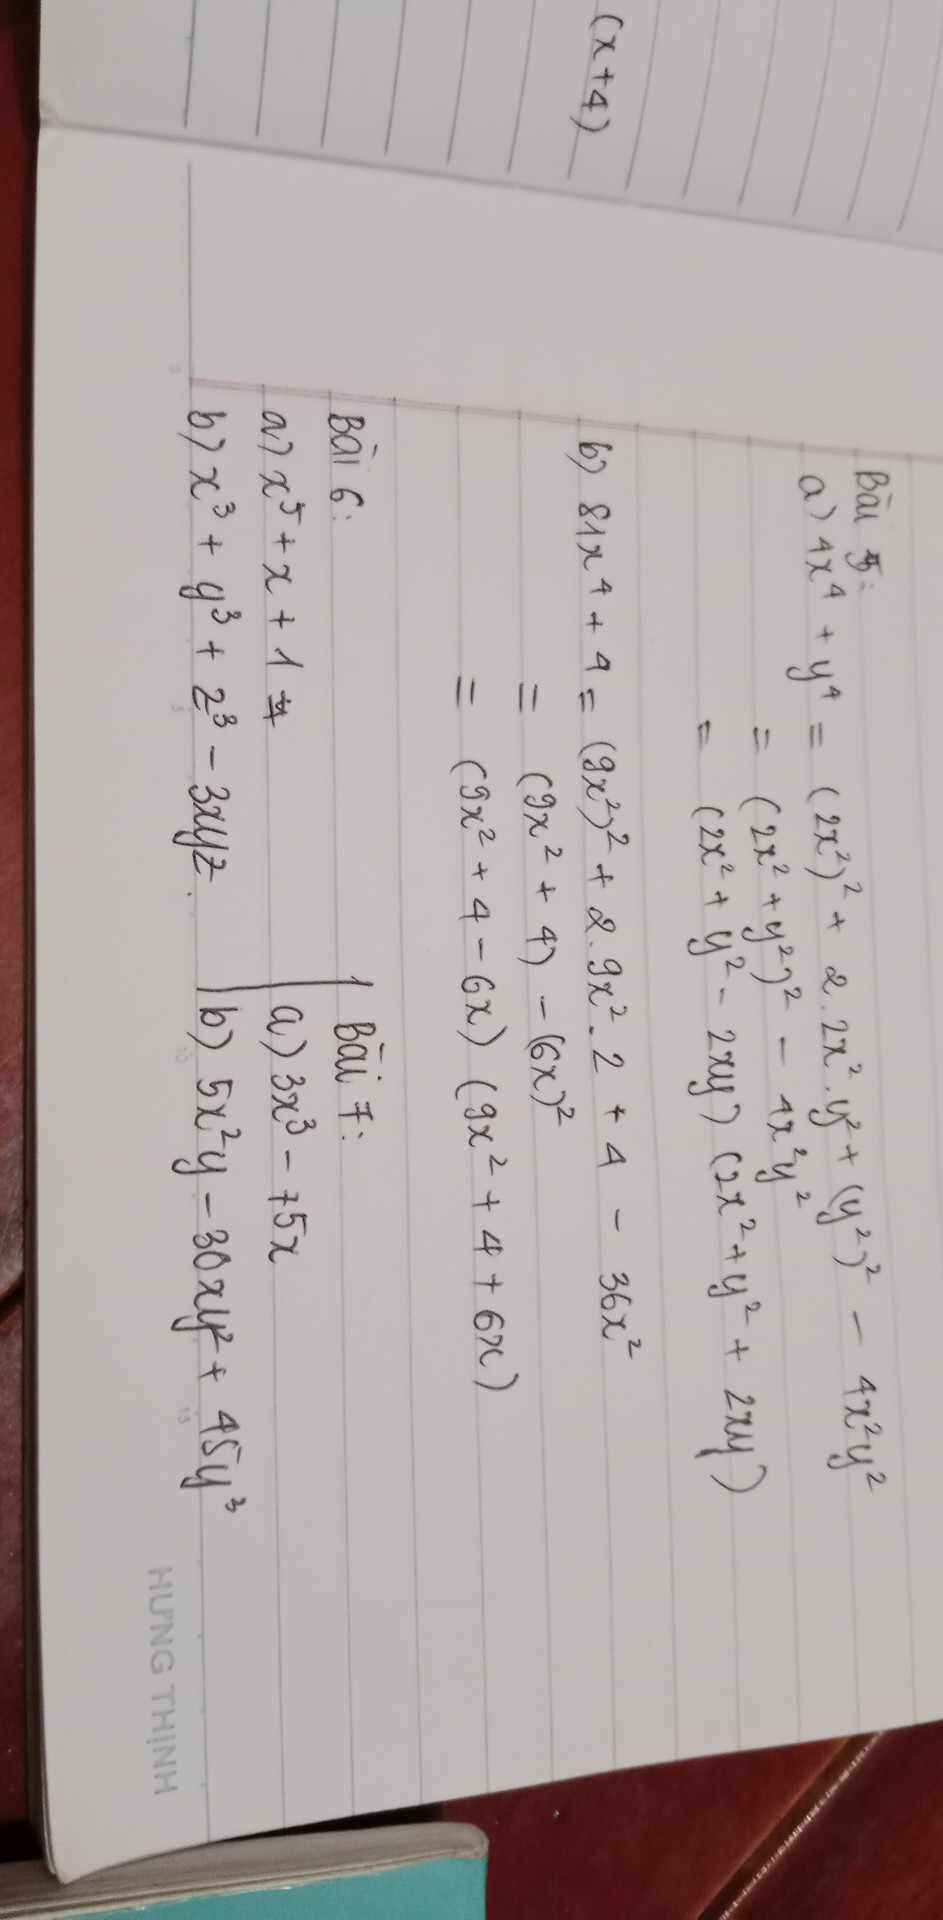 (x+4)
Bài 5:
a) 4x⁴ + y⁴ = (2x²)² + 2.2x².y² + (y²)² - 4x²y²
= (2x² + y²)² - 4x²y²
= (2x² + y² - 2xy) (2x² + y² + 2xy)
b) 81x⁴ + 4 = (9x²)² + 2.9x².2 + 4 - 36x²
= (9x² + 4) - (6x)²
= (9x² + 4 - 6x) (9x² + 4 + 6x)
Bài 6:
a) x⁵ + x + 1
b) x³ + y³ + z³ - 3xyz.
Bài 7:
a) 3x³ - 75x
b) 5x²y - 30xy² + 45y³
HƯNG THỊNH